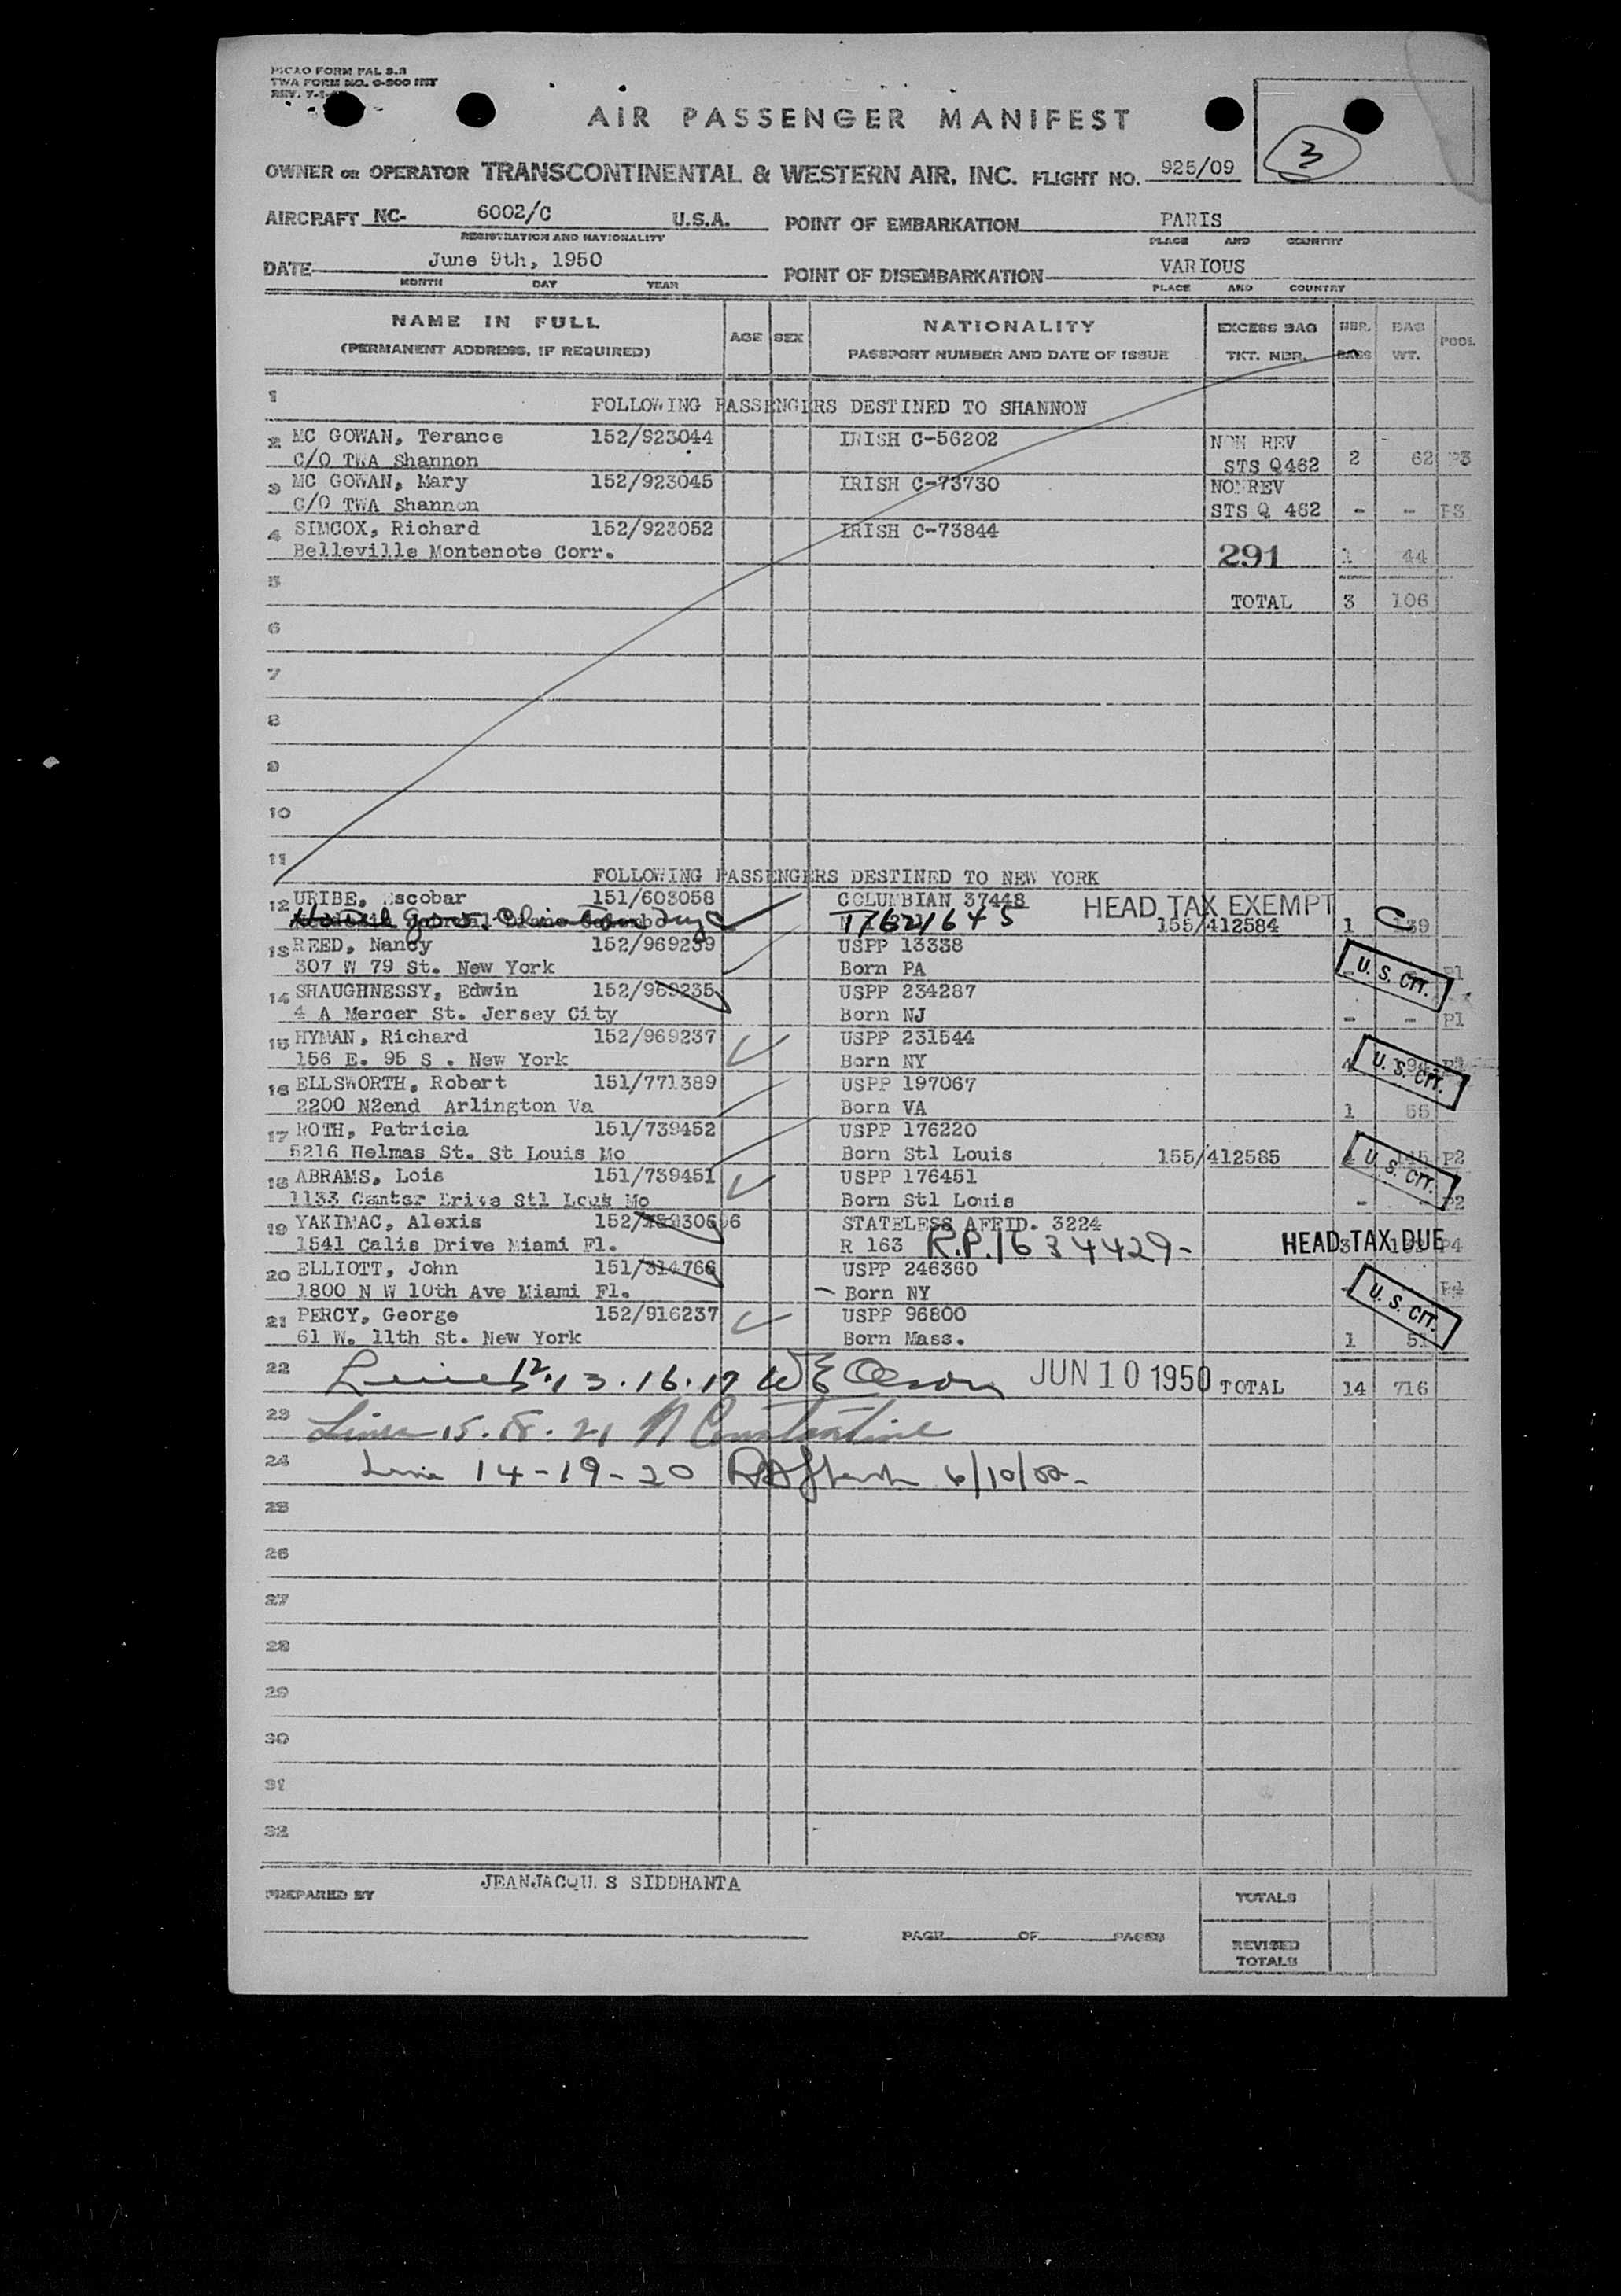 PICAO FORM PAL S.R
TWA FORM NO. O-800 INT
REV.
AIR PASSENGER MANIFEST
3
OWNER OR OPERATOR TRANSCONTINENTAL & WESTERN AIR, INC. FLIGHT NO. 925/09
AIRCRAFT NC- 6002/C U.S.A. POINT OF EMBARKATION PARIS
REGISTRATION AND NATIONALITY PLACE AND COUNTRY
DATE June 9th, 1950 POINT OF DISEMBARKATION VARIOUS
MONTH DAY YEAR PLACE AND COUNTRY
NAME IN FULL AGE SEX NATIONALITY EXCESS BAG NBR. BAG POOL
(PERMANENT ADDRESS, IF REQUIRED) PASSPORT NUMBER AND DATE OF ISSUE TKT. NBR. BAGS WT.
1 FOLLOWING PASSENGERS DESTINED TO SHANNON
2 MC GOWAN, Terance 152/923044 IRISH C-56202 NON REV
C/O TWA Shannon STS Q462 2 62 P3
3 MC GOWAN, Mary 152/923045 IRISH C-73730 NONREV
C/O TWA Shannon STS Q 462 - - P3
4 SIMCOX, Richard 152/923052 IRISH C-73844
Belleville Montenote Corr. 291 1 44
5 TOTAL 3 106
6
7
8
9
10
11 FOLLOWING PASSENGERS DESTINED TO NEW YORK
12 URIBE, Escobar 151/603058 COLUMBIAN 37448 HEAD TAX EXEMPT
155/412584 1 139
13 REED, Nancy 152/969239 USPP 13338
307 W 79 St. New York Born PA U. S. CIT. P1
14 SHAUGHNESSY, Edwin 152/969235 USPP 234287
4 A Mercer St. Jersey City Born NJ - - P1
15 HYMAN, Richard 152/969237 USPP 231544
156 E. 95 S . New York Born NY U. S. CIT.
16 ELLSWORTH, Robert 151/771389 USPP 197067
2200 N2end Arlington Va Born VA 1
17 ROTH, Patricia 151/739452 USPP 176220
5216 Helmas St. St Louis Mo Born Stl Louis 155/412585 U. S. CIT. P2
18 ABRAMS, Lois 151/739451 USPP 176451
1133 Cantar Drive Stl Mo Born Stl Louis - P2
19 YAKIMAC, Alexis STATELESS AFFID. 3224
1541 Calis Drive Miami Fl. R 163 R.P. 1634429- 3 HEAD TAX DUE P4
20 ELLIOTT, John 151/314766 USPP 246360
1800 N W 10th Ave Miami Fl. Born NY U. S. CIT. P4
21 PERCY, George 152/916237 USPP 96800
61 W. 11th St. New York Born Mass. 1
22 Lines 12.13.16.17 W E Olson JUN 10 1950 TOTAL 14 716
23 Lines 15.18.21 N Constantine
24 Line 14-19-20
25
26
27
28
29
30
31
32
PREPARED BY JEANJACQU S SIDDHANTA
TOTALS
PAGE OF PAGES
REVISED
TOTALS